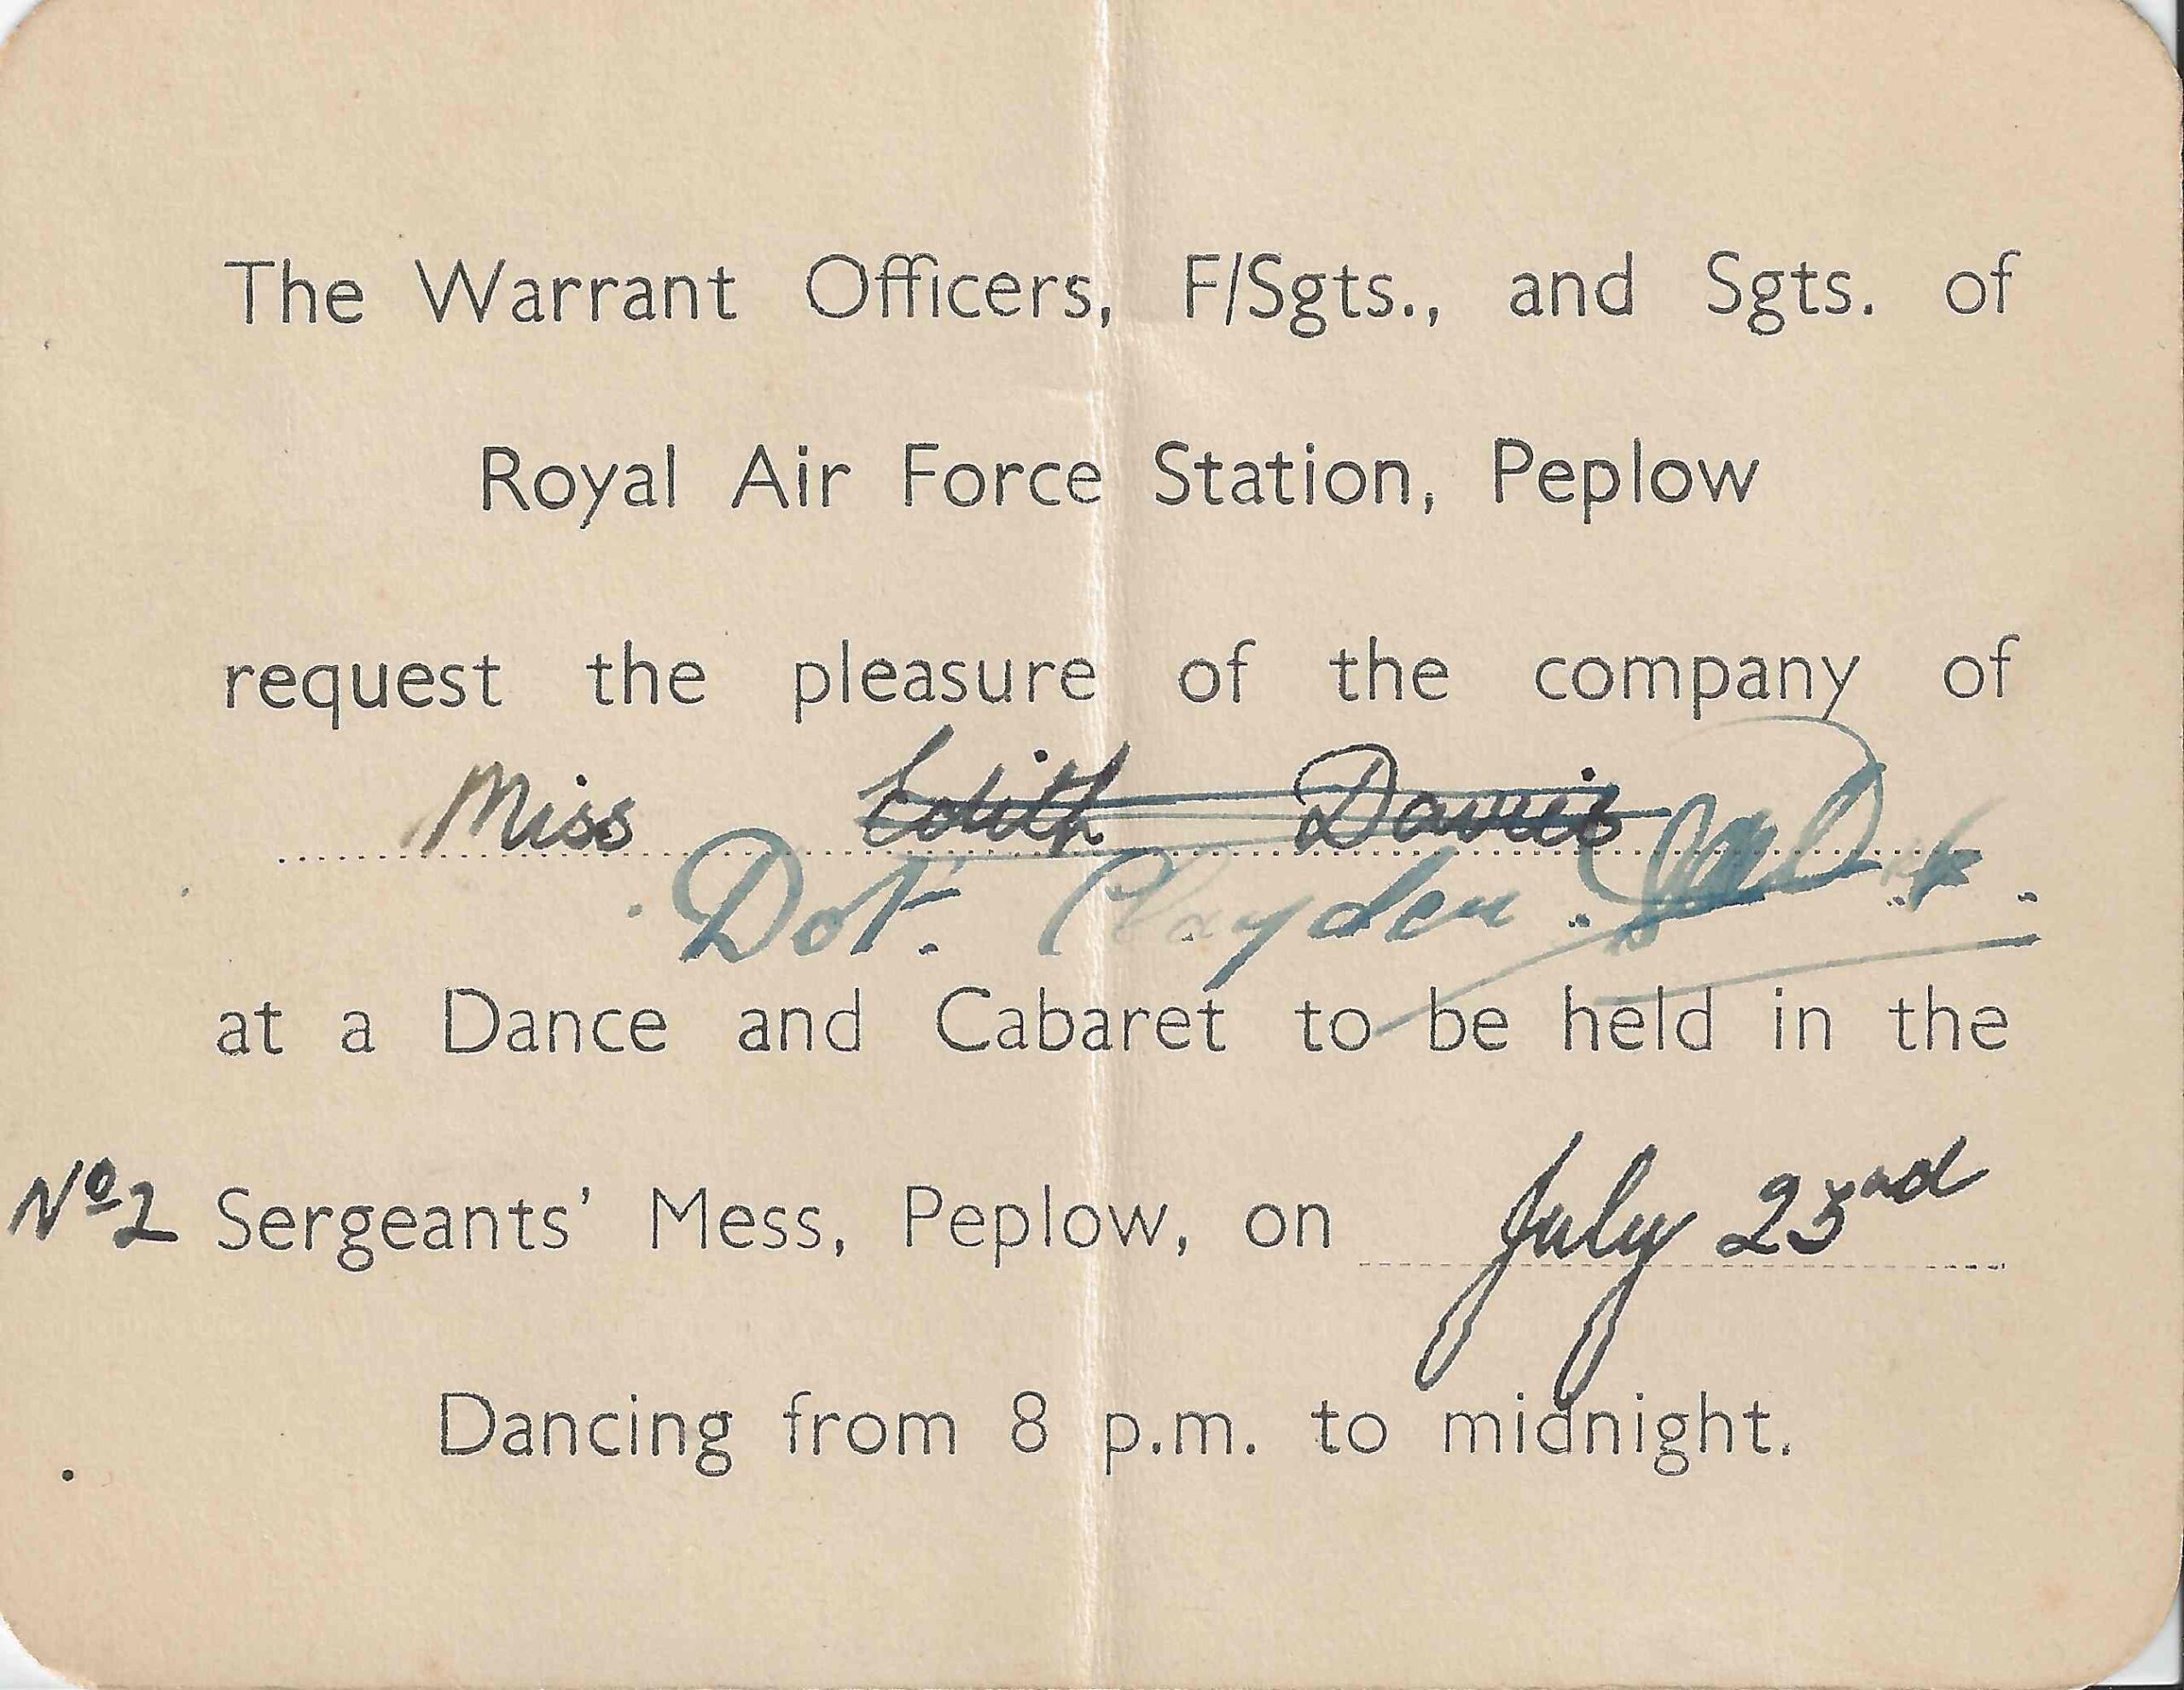 The Warrant Officers, F/Sgts., and Sgts. of
Royal Air Force Station, Peplow
request the pleasure of the company of
Miss Edith Davies
Dot. Clayden.
at a Dance and Cabaret to be held in the
Nº2 Sergeants' Mess, Peplow, on July 23rd
Dancing from 8 p.m. to midnight.